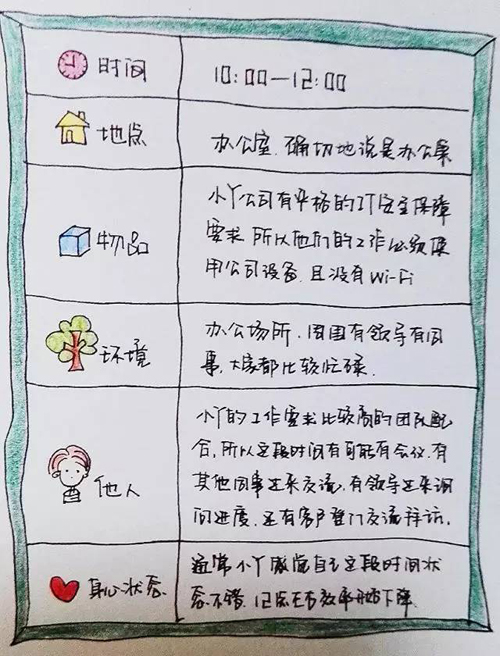 时间
10:00—12:00
地点
办公室.确切地说是办公桌
物品
小丫公司有严格的IT安全保障
要求.所以他们的工作必须使
用公司设备.且没有Wi-Fi
环境
办公场所.周围有领导有同
事,大家都比较忙碌.
他人
小丫的工作要求比较高的团队配
合,所以这段时间有可能有会议.有
其他同事过来交流,有领导过来询
问进度.还有客户登门交流拜访.
身心状态
通常小丫感觉自己这段时间状
态不错.记忆 效率 下降.